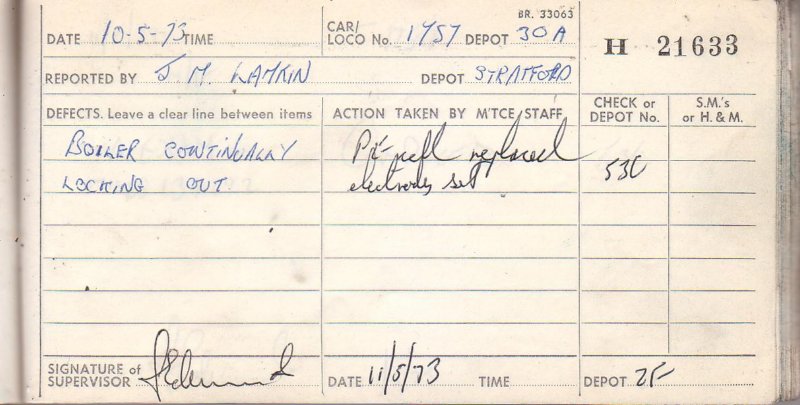 BR. 33063
DATE 10-5-73 TIME CAR/ LOCO No. 1757 DEPOT 30A H 21633
REPORTED BY J M. LAMKIN DEPOT STRATFORD
DEFECTS. Leave a clear line between items ACTION TAKEN BY M'TCE STAFF CHECK or DEPOT No. S.M.'s or H. & M.
BOILER CONTINUALLY replaced
LOCKING OUT electrodes set 530
SIGNATURE of SUPERVISOR DATE 11/5/73 TIME DEPOT